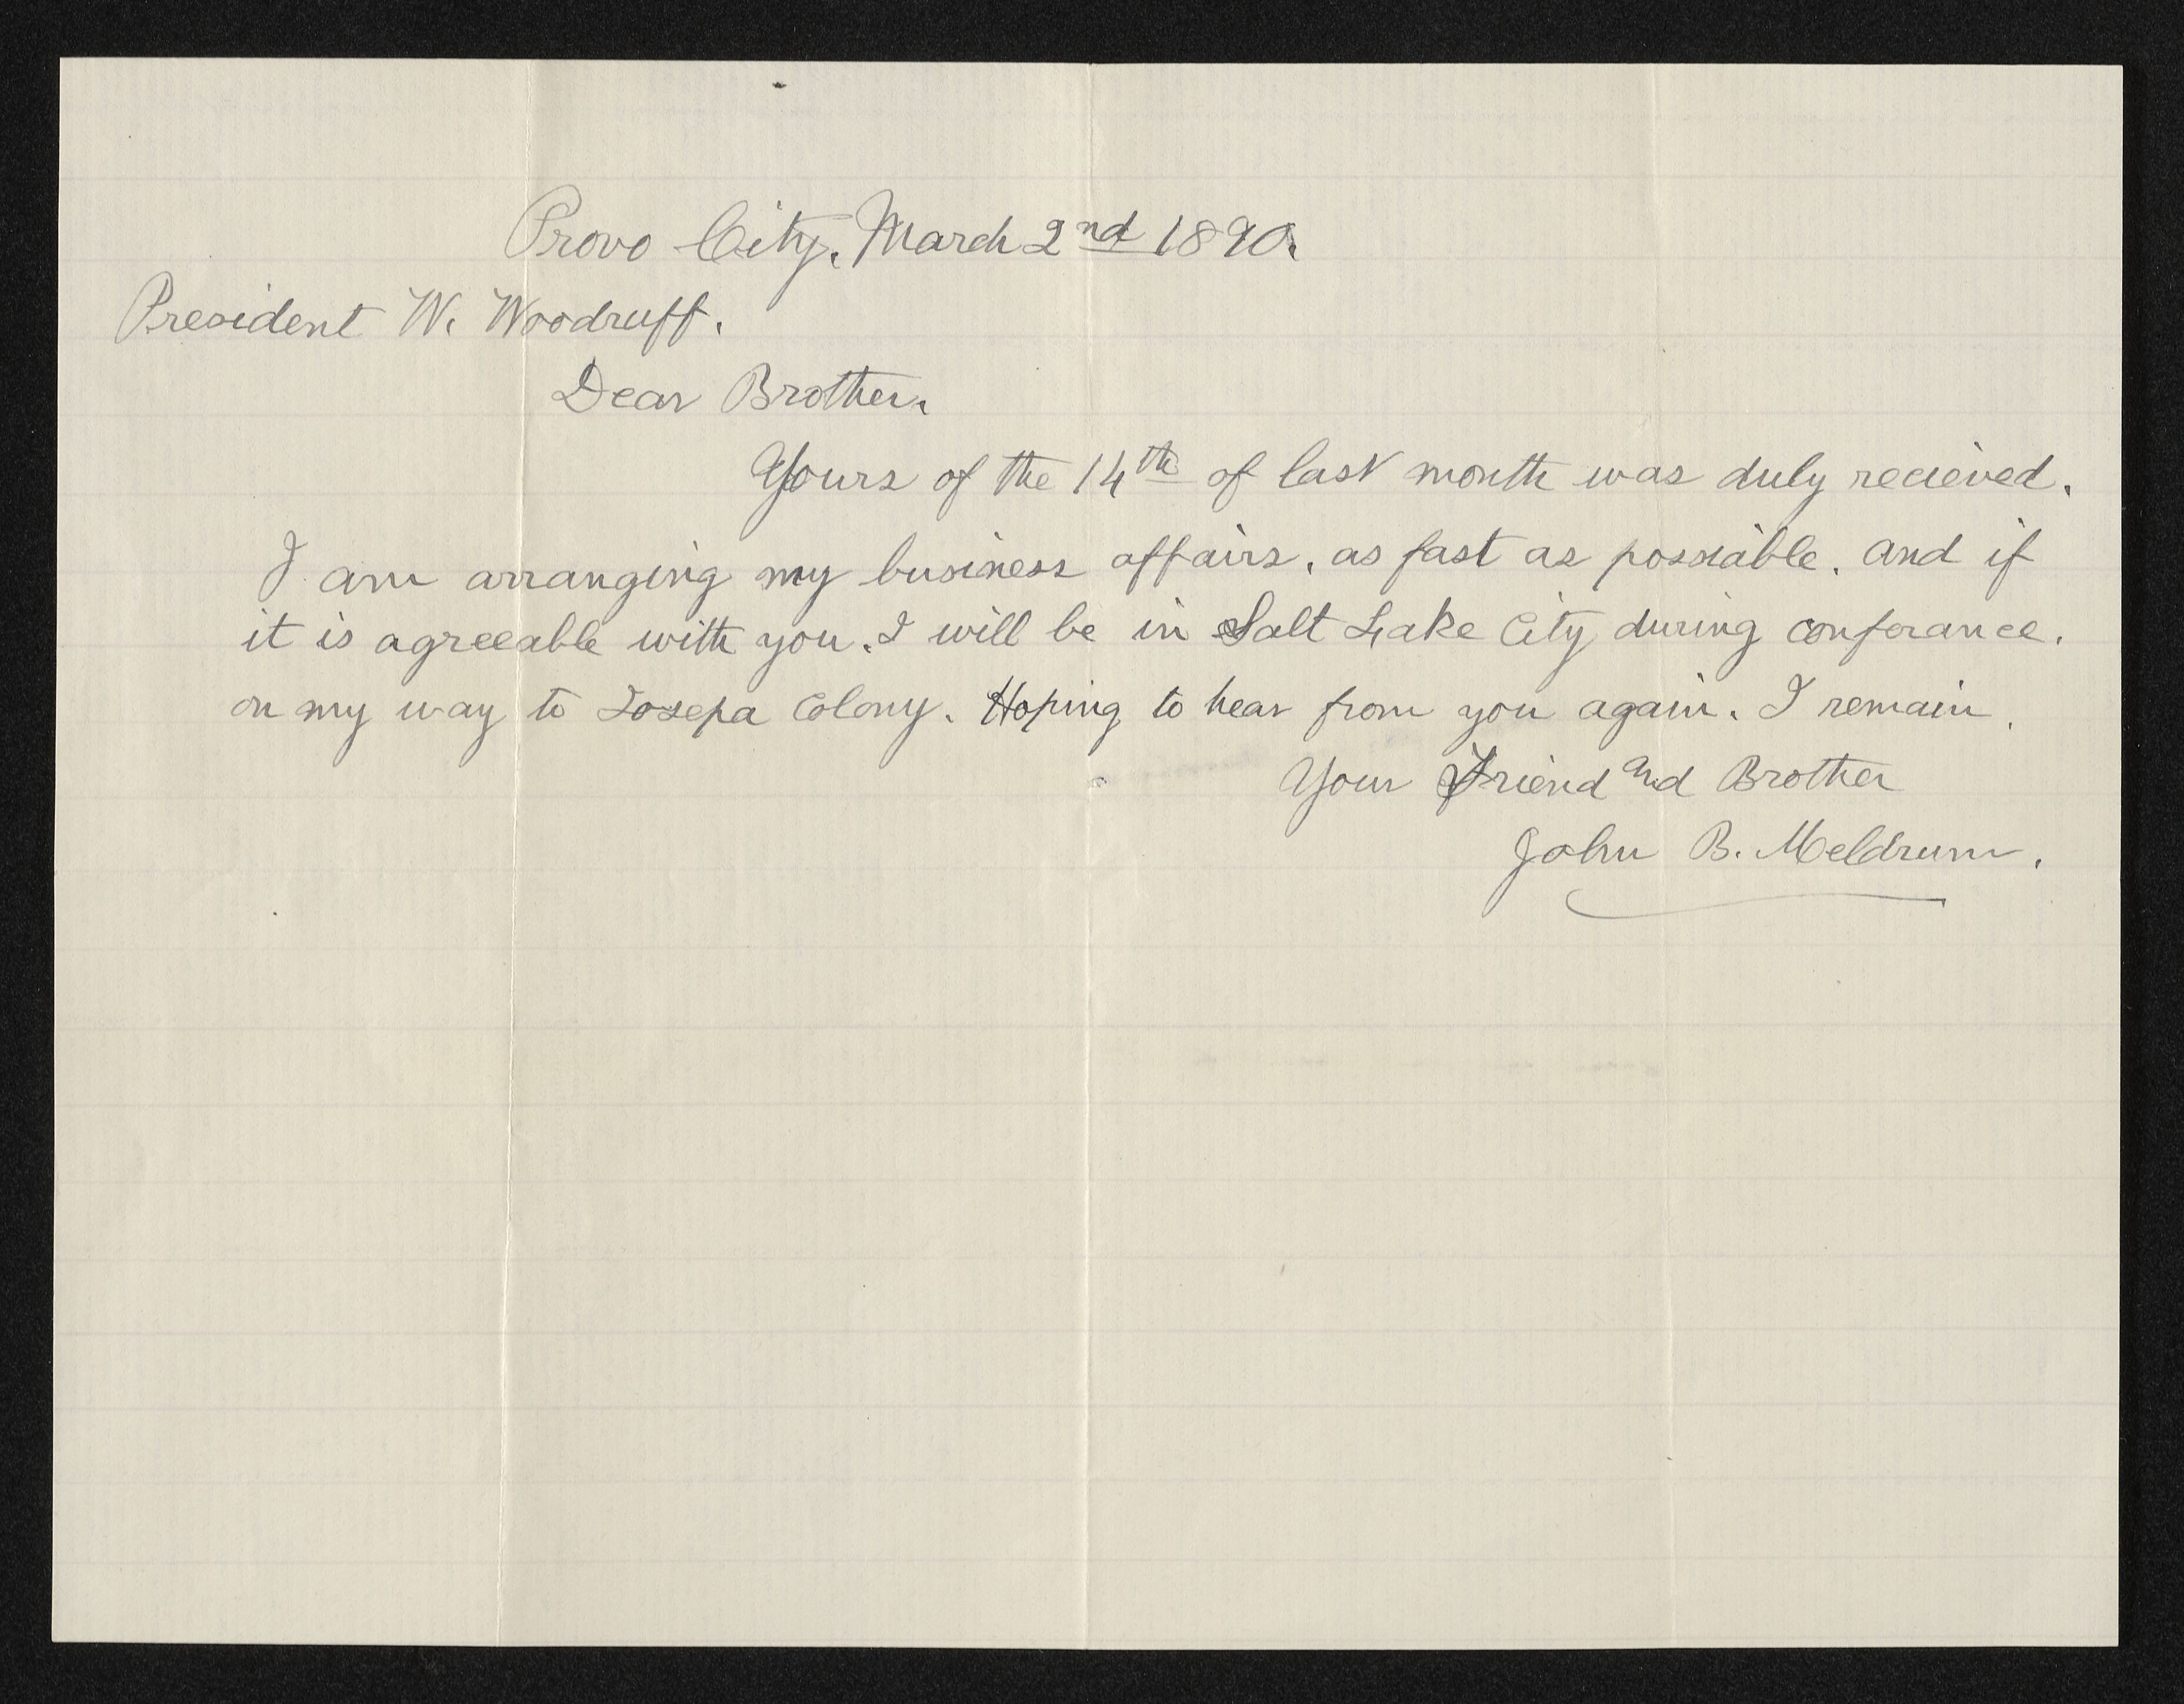 Provo City, March 2nd 1890.
President W. Woodruff.
Dear Brother.
Yours of the 14th of last month was duly recieved.
I am arranging my business affairs, as fast as possiable. and if
it is agreeable with you. I will be in Salt Lake City during conferance.
on my way to Iosepa Colony. Hoping to hear from you again. I remain.
Your Friend and Brother
John B. Meldrum.